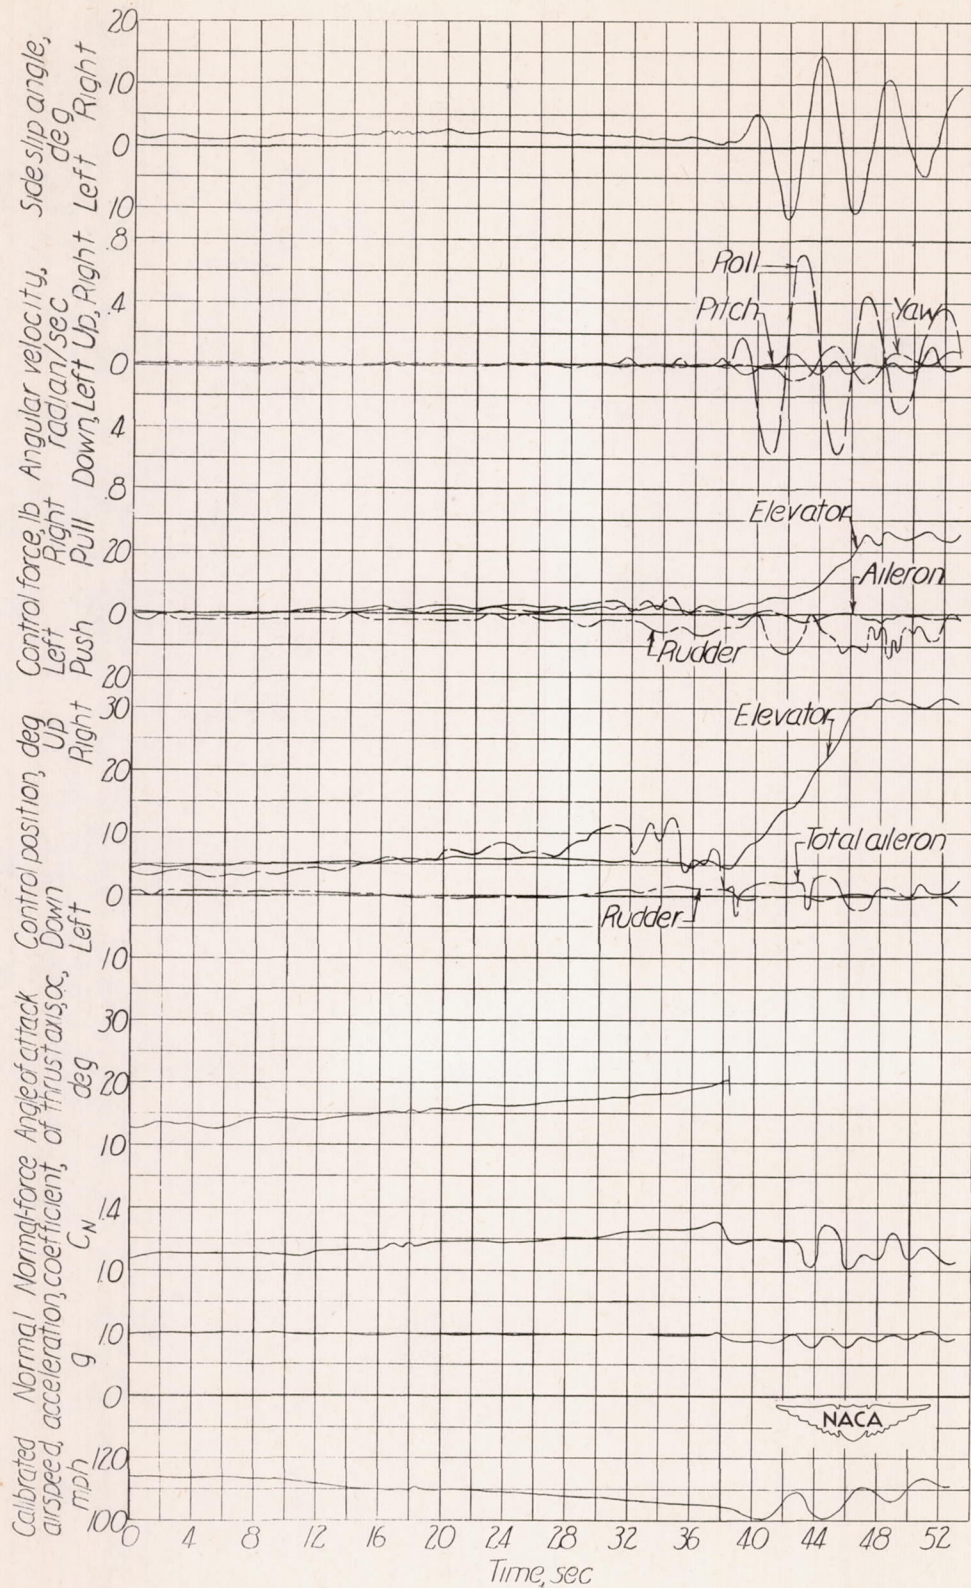 Sideslip angle,
deg
Left Right
20
10
0
10
Angular velocity,
radian/sec
Down, Left Up, Right
.8
.4
0
.4
.8
Roll
Pitch
Yaw
Control force, lb
Left Right
Push Pull
20
0
20
Elevator
Aileron
Rudder
Control position, deg
Down Up
Left Right
30
20
10
0
10
Elevator
Total aileron
Rudder
Angle of attack
of thrust axis, α,
deg
30
20
10
Normal-force
coefficient,
C_N
1.4
1.0
Normal
acceleration,
g
1.0
0
NACA
Calibrated
airspeed,
mph
120
100
0 4 8 12 16 20 24 28 32 36 40 44 48 52
Time, sec